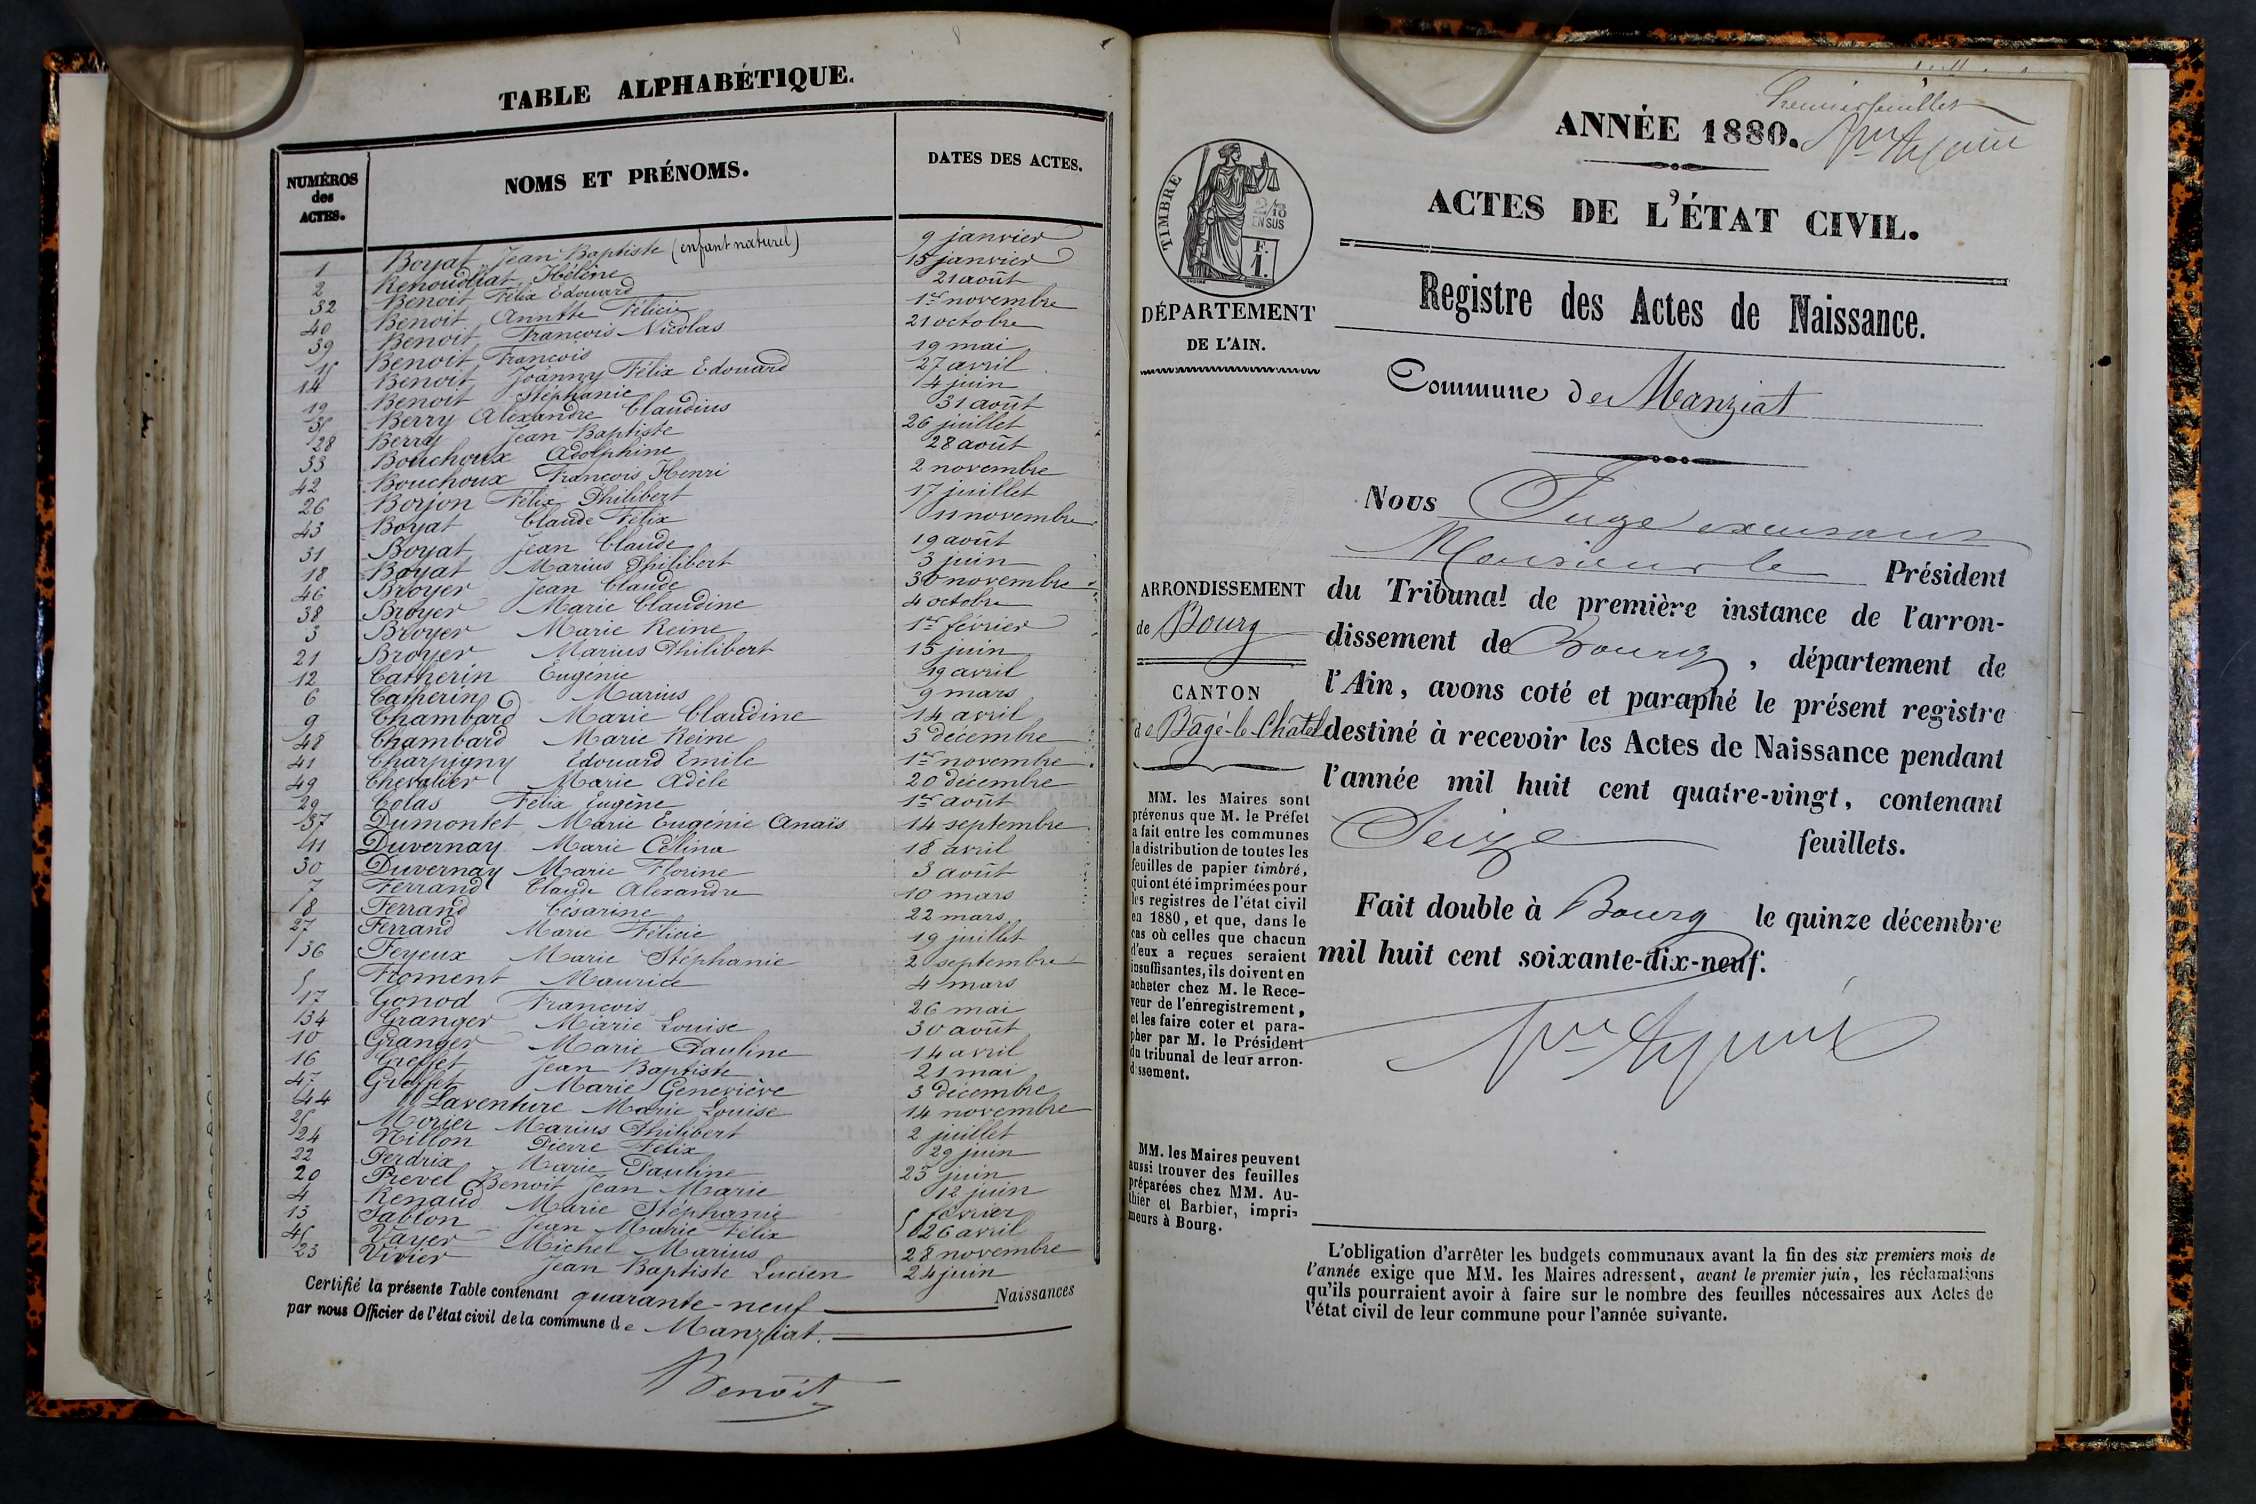 TABLE ALPHABÉTIQUE.
NUMÉROS des ACTES. NOMS ET PRÉNOMS. DATES DES ACTES.
1 Boyat Jean Baptiste (enfant naturel) 9 janvier
2 Renoudliat Hélène 15 janvier
32 Benoit Félix Edouard 21 août
40 Benoit Annette Félicie 1er novembre
39 Benoit François Nicolas 21 octobre
15 Benoit François 19 mai
14 Benoit Joanny Félix Edouard 27 avril
19 Benoit Stéphanie 4 juin
35 Berry Alexandre Claudius 31 août
28 Berry Jean Baptiste 26 juillet
33 Bouchoux Adolphine 28 août
42 Bouchoux François Henri 2 novembre
26 Borjon Félix Philibert 17 juillet
43 Boyat Claude Félix 11 novembre
31 Boyat Jean Claude 19 août
18 Boyat Marius Philibert 3 juin
46 Broyer Jean Claude 30 novembre
38 Broyer Marie Claudine 4 octobre
3 Broyer Marie Reine 1er février
21 Broyer Marius Philibert 15 juin
12 Catherin Eugénie 19 avril
6 Catherin Marius 9 mars
9 Chambard Marie Claudine 14 avril
48 Chambard Marie Reine 3 décembre
41 Charpigny Edouard Emile 1er novembre
49 Chevalier Marie Adèle 20 décembre
29 Colas Félix Eugène 1er août
37 Dumontet Marie Eugénie Anaïs 14 septembre
11 Duvernay Marie Célina 18 avril
30 Duvernay Marie Florine 3 août
7 Ferrand Claude Alexandre 10 mars
8 Ferrand Césarine 22 mars
27 Ferrand Marie Félicie 19 juillet
36 Feyeux Marie Stéphanie 2 septembre
5 Froment Maurice 4 mars
17 Gonod François 26 mai
34 Granger Marie Louise 30 août
10 Granger Marie Pauline 14 avril
16 Greffet Jean Baptiste 21 mai
47 Greffet Marie Geneviève 3 décembre
44 Laventure Marie Louise 14 novembre
25 Morier Marius Philibert 2 juillet
24 Nillon Pierre Félix 29 juin
22 Perdrix Marie Pauline 23 juin
20 Prevel Benoit Jean Marie 12 juin
4 Renaud Marie Stéphanie 5 février
13 Sablon Jean Marie Félix 26 avril
45 Vayer Michel Marius 28 novembre
23 Vivier Jean Baptiste Lucien 24 juin
Certifié la présente Table contenant quarante-neuf Naissances
par nous Officier de l'état civil de la commune de Manziat.
Benoit
Premier feuillet
ANNÉE 1880.
ACTES DE L'ÉTAT CIVIL.
TIMBRE
2/10
EN SUS
F.
1.
DÉPARTEMENT
DE L'AIN.
Registre des Actes de Naissance.
Commune de Manziat
Nous Juge excusant
Monsieur le Président
du Tribunal de première instance de l'arron-
dissement de Bourg, département de
l'Ain, avons coté et paraphé le présent registre
destiné à recevoir les Actes de Naissance pendant
l'année mil huit cent quatre-vingt, contenant
Seize feuillets.
Fait double à Bourg le quinze décembre
mil huit cent soixante-dix-neuf.
ARRONDISSEMENT
de Bourg
CANTON
de Bagé-le-Châtel
MM. les Maires sont
prévenus que M. le Préfet
a fait entre les communes
la distribution de toutes les
feuilles de papier timbré,
qui ont été imprimées pour
les registres de l'état civil
en 1880, et que, dans le
cas où celles que chacun
d'eux a reçues seraient
insuffisantes, ils doivent en
acheter chez M. le Rece-
veur de l'enregistrement,
et les faire coter et para-
pher par M. le Président
du tribunal de leur arron-
dissement.
MM. les Maires peuvent
aussi trouver des feuilles
préparées chez MM. Au-
thier et Barbier, impri-
meurs à Bourg.
L'obligation d'arrêter les budgets communaux avant la fin des six premiers mois de
l'année exige que MM. les Maires adressent, avant le premier juin, les réclamations
qu'ils pourraient avoir à faire sur le nombre des feuilles nécessaires aux Actes de
l'état civil de leur commune pour l'année suivante.